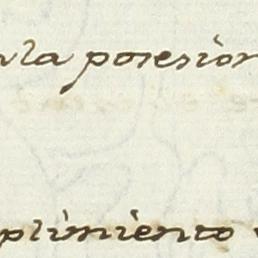 ala posesion
plimiento